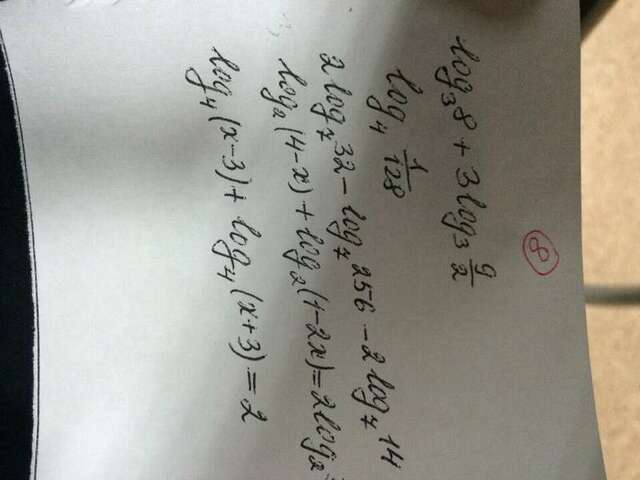 ⑧
log₃8 + 3log₃ 9/2
log₄ 1/128
2log₇32 - log₇256 - 2log₇14
log₂(4-x) + log₂(1-2x) = 2log₂
log₄(x-3) + log₄(x+3) = 2